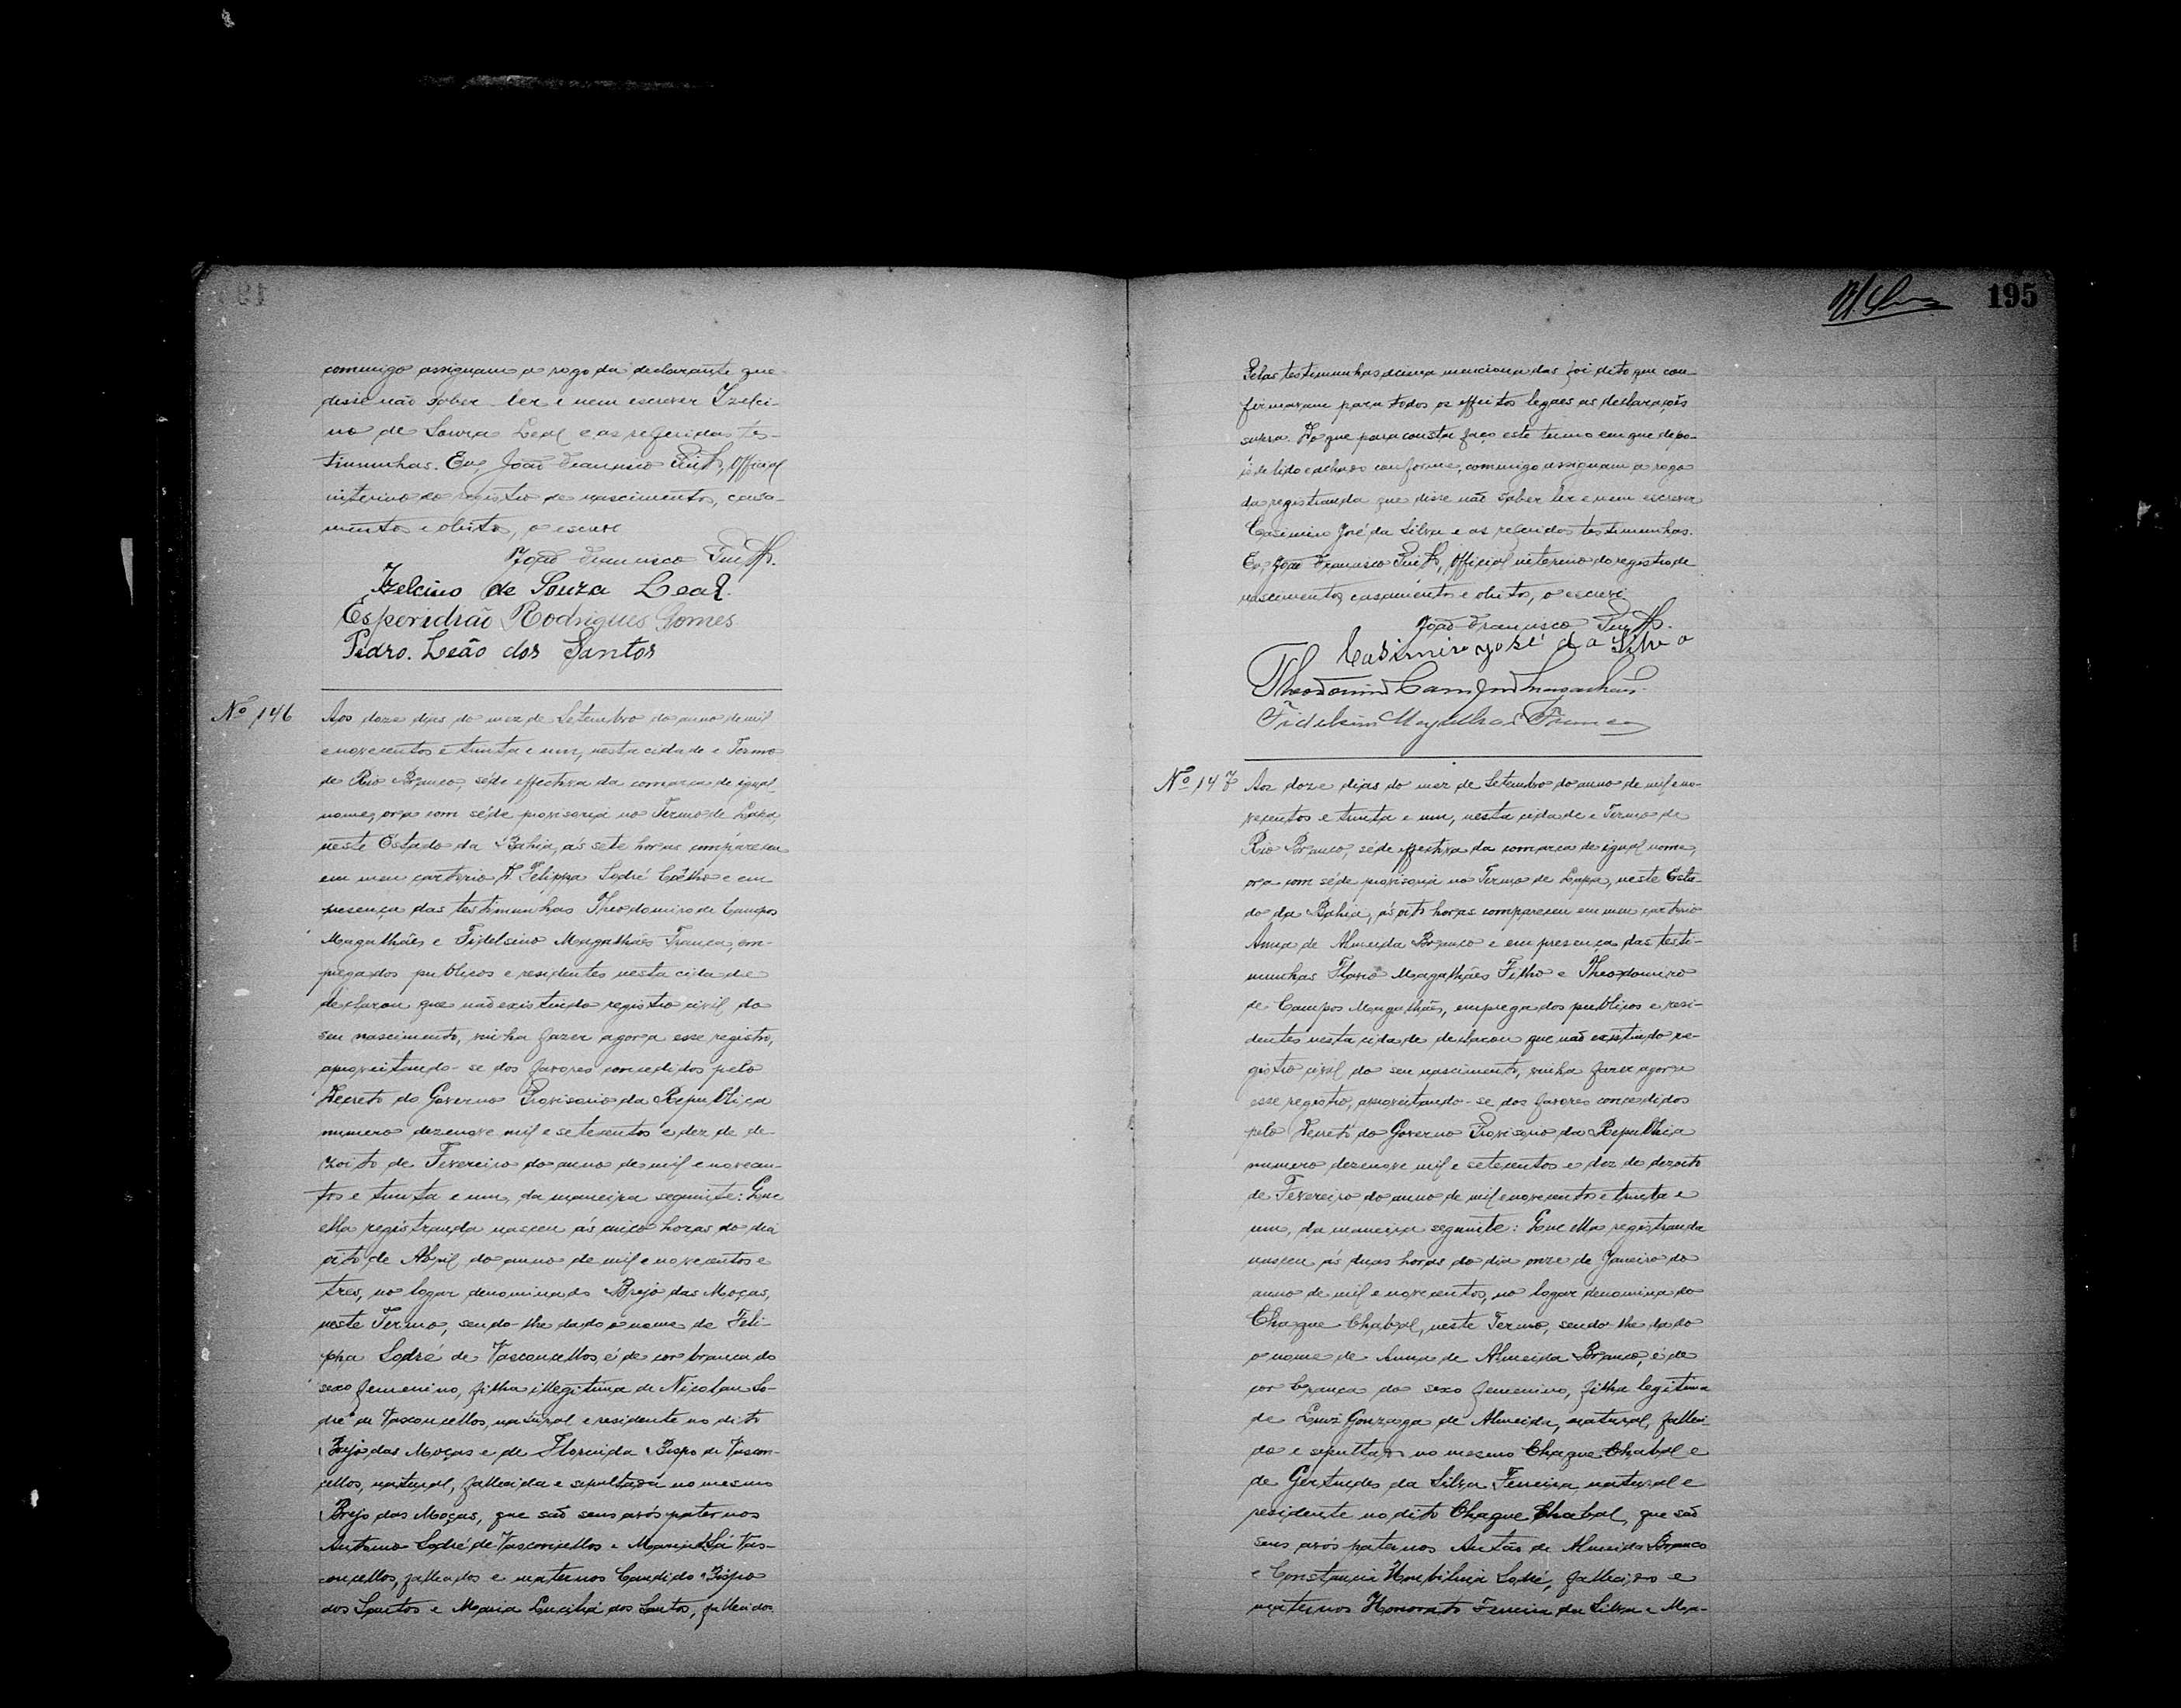 commigo assignam a rogo da declarante que
disse não saber ler e nem escrever Izelci-
no de Souza Leal e as referidas tes-
timunhas. Eu, João Francisco, Official
interino do registro de nascimentos, casa-
mentos e obitos, o escrevi
João Francisco
Izelcino de Souza Leal.
Esperidião Rodrigues Gomes
Pedro. Leão dos Santos
Nº 146
Aos doze dias do mez de Setembro do anno de mil
e novecentos e trinta e um, nesta cidade e Termo
de Rio Branco, séde effectiva da comarca de igual
nome, ora com séde provisoria no Termo de Lapa,
neste Estado da Bahia, ás sete horas compareceu
em meu cartorio D. Felippa Sodré Coêlho e em
presença das testimunhas Theodomiro de Campos
Magalhães e Fidelsino Magalhães Franca, em-
pregados publicos e residentes nesta cidade
declarou que não existindo registro civil do
seu nascimento, vinha fazer agora esse registro,
aproveitando-se dos favores concedidos pelo
Decreto do Governo Provisorio da Republica
numero dezenove mil e setecentos e dez de de-
zoito de Fevereiro do anno de mil e novecen-
tos e trinta e um, da maneira seguinte: Que
ella registranda nasceu ás cinco horas do dia
oito de Abril do anno de mil e novecentos e
tres, no logar denominado Brejo das Moças,
neste Termo, sendo-lhe dado o nome de Feli-
ppa Sodré de Vasconcellos, é de cor branca do
sexo femenino, filha illegitima de Nicolau So-
dré de Vasconcellos, natural e residente no dito
Brejo das Moças e de Florinda Bispo de Vascon-
cellos, natural, fallecida e sepultada no mesmo
Brejo das Moças, que são seus avós paternos
Antonio Sodré de Vasconcellos e Maria Sá Vas-
concellos, fallecidos e maternos Candido Bispo
dos Santos e Maria Lucilia dos Santos, fallecidos.
195
Pelas testimunhas acima mencionadas foi dito que con-
firmavam para todos os effeitos legaes as declarações
supra. Do que para constar faço este termo em que depo-
is de lido e achado conforme, commigo assignam a rogo
da registranda que disse não saber ler e nem escrever
Casimiro José da Silva e as referidas testimunhas.
Eu, João Francisco, Official interino do registro de
nascimentos, casamentos e obitos, o escrevi
João Francisco
Casimiro José da Silva
Theodomiro Campos Magalhães.
Fidelsino Magalhães Franca
Nº 147
Aos doze dias do mez de Setembro do anno de mil e no-
vecentos e trinta e um, nesta cidade e Termo de
Rio Branco, séde effectiva da comarca de igual nome,
ora com séde provisoria no Termo de Lapa, neste Esta-
do da Bahia, ás oito horas compareceu em meu cartorio
Anna de Almeida Branco e em presença das testi-
munhas Flavio Magalhães Filho e Theodomiro
de Campos Magalhães, empregados publicos e resi-
dentes nesta cidade declarou que não existindo re-
gistro civil do seu nascimento, vinha fazer agora
esse registro, aproveitando-se dos favores concedidos
pelo Decreto do Governo Provisorio da Republica
numero dezenove mil e setecentos e dez de dezoito
de Fevereiro do anno de mil e novecentos e trinta e
um, da maneira seguinte: Que ella registranda
nasceu ás duas horas do dia onze de Janeiro do
anno de mil e novecentos, no logar denominado
Chaque Chabal, neste Termo, sendo-lhe dado
o nome de Anna de Almeida Branco, é de
cor branca do sexo femenino, filha legitima
de Luiz Gonzaga de Almeida, natural, falleci-
do e sepultado no mesmo Chaque Chabal e
de Gertrudes da Silva Ferreira natural e
residente no dito Chaque Chabal, que são
seus avós paternos Antão de Almeida Branco
e Constancia Sodré, fallecidos e
maternos Honorato Ferreira da Silva e Ma-